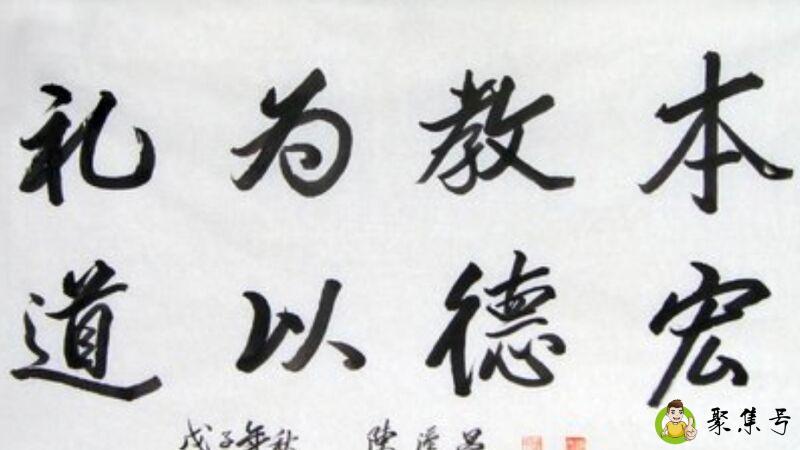 礼为教本
道以德宏
戊子年秋
聚集号